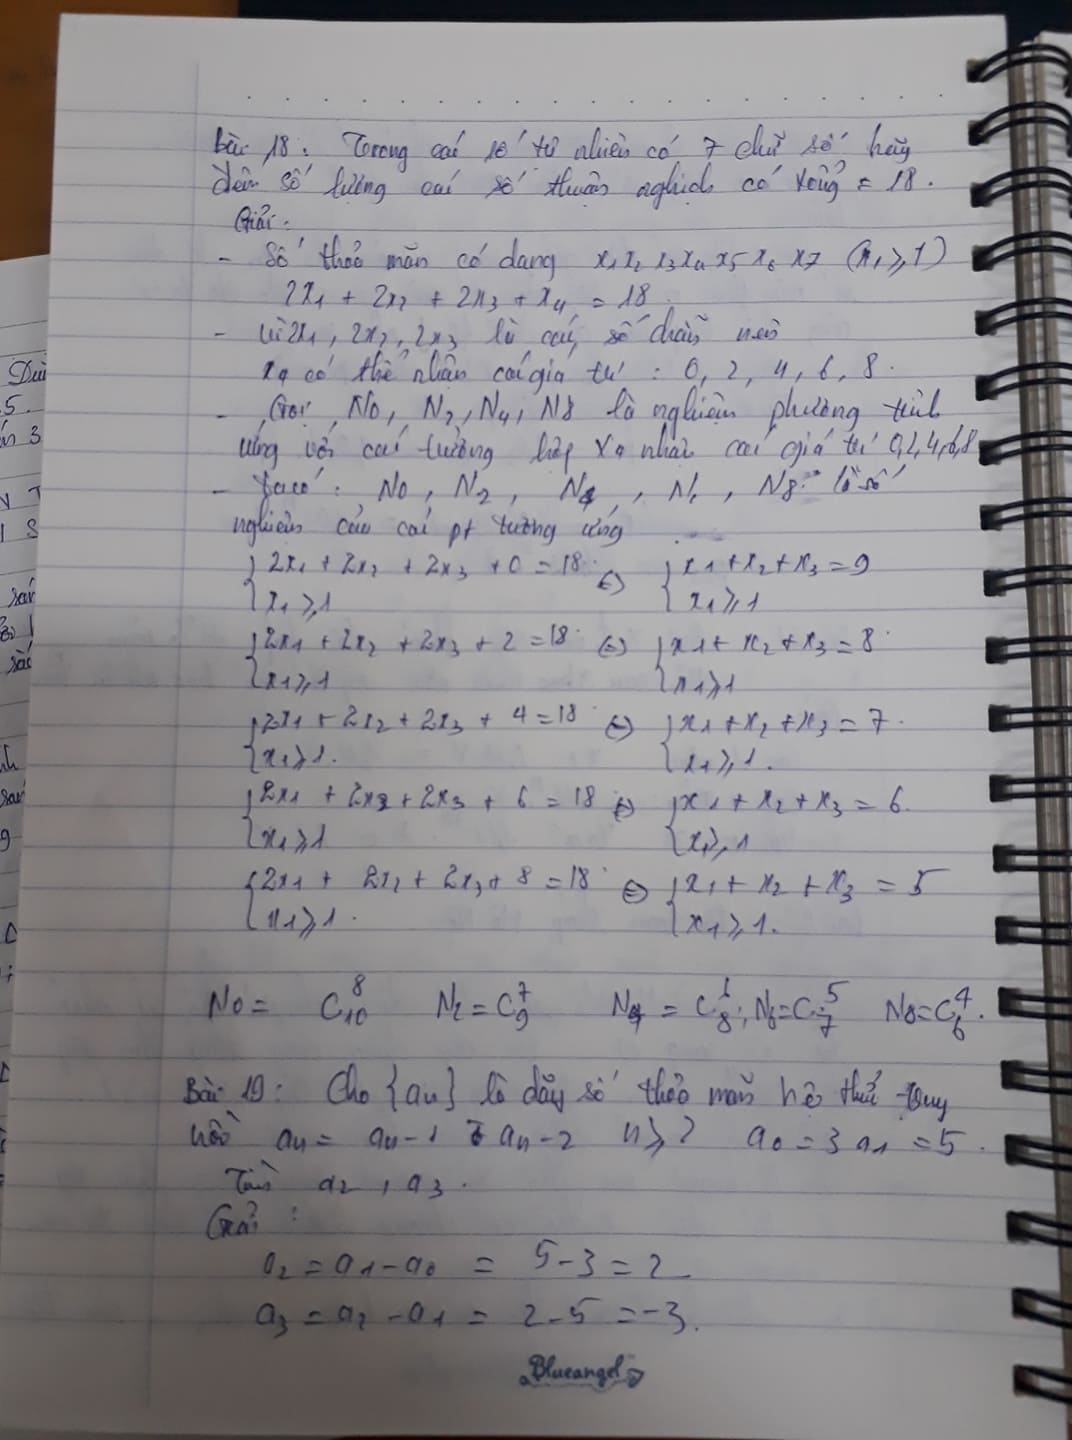 Bài 18: Trong các số tự nhiên có 7 chữ số hãy
đếm số lượng các số thuận nghịch có tổng = 18.
Giải:
- Số thoả mãn có dạng x1x2 x3x4 x5 x6 x7 (x1 ≥ 1)
2x1 + 2x2 + 2x3 + x4 = 18
- Vì 2x1, 2x2, 2x3 là các số chẵn nên
x4 có thể nhận các giá trị: 0, 2, 4, 6, 8.
- Gọi N0, N2, N4, N8 là nghiệm phương trình
ứng với các trường hợp x4 nhận các giá trị 0,2,4,6,8
- Ta có: N0, N2, N4, N6, N8 là số
nghiệm của các pt tương ứng
{ 2x1 + 2x2 + 2x3 + 0 = 18 ⇔ { x1 + x2 + x3 = 9
{ x1 ≥ 1 { x1 ≥ 1
{ 2x1 + 2x2 + 2x3 + 2 = 18 ⇔ { x1 + x2 + x3 = 8
{ x1 ≥ 1 { x1 ≥ 1
{ 2x1 + 2x2 + 2x3 + 4 = 18 ⇔ { x1 + x2 + x3 = 7.
{ x1 ≥ 1. { x1 ≥ 1.
{ 2x1 + 2x2 + 2x3 + 6 = 18 ⇔ { x1 + x2 + x3 = 6.
{ x1 ≥ 1 { x1 ≥ 1
{ 2x1 + 2x2 + 2x3 + 8 = 18 ⇔ { x1 + x2 + x3 = 5
{ x1 ≥ 1. { x1 ≥ 1.
N0 = C10^8 N2 = C9^7 N4 = C8^6; N6 = C7^5 N8 = C6^4.
Bài 19: Cho {an} là dãy số thoả mãn hệ thức truy
hồi an = an-1 - an-2 n ≥ 2 a0 = 3 a1 = 5.
Tìm a2, a3.
Giải:
a2 = a1 - a0 = 5 - 3 = 2
a3 = a2 - a1 = 2 - 5 = -3.
Blueangel